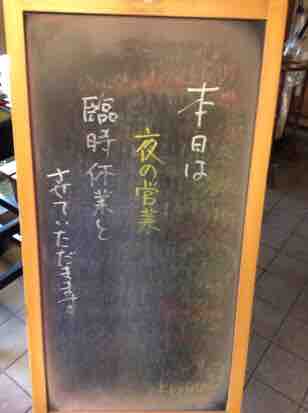 本日は
夜の営業
臨時休業と
させていただきます。